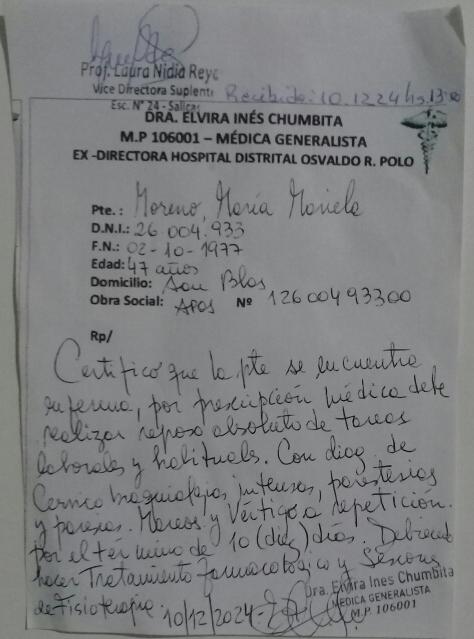 Prof. Laura Nidia Reye
Vice Directora Suplente
Esc. N° 24 - Salicas
Recibido: 10.12.24 hs. 13:00
DRA. ELVIRA INÉS CHUMBITA
M.P 106001 – MÉDICA GENERALISTA
EX -DIRECTORA HOSPITAL DISTRITAL OSVALDO R. POLO
Pte.: Moreno, María Mariela
D.N.I.: 26 004.933
F.N.: 02-10-1977
Edad: 47 años
Domicilio: San Blas
Obra Social: APOS Nº 12600493300
Rp/
Certifico que la pte se encuentra
enferma, por prescripción médica debe
realizar reposo absoluto de tareas
laborales y habituales. Con diag. de
Cervico braquialgias intensas, parestesias
y paresias. Mareos y Vértigos a repetición.
por el término de 10 (diez) días. Debiendo
hacer Tratamiento farmacológico y Sesiones
de Fisioterapia. 10/12/2024.
Dra. Elvira Ines Chumbita
MÉDICA GENERALISTA
M.P. 106001